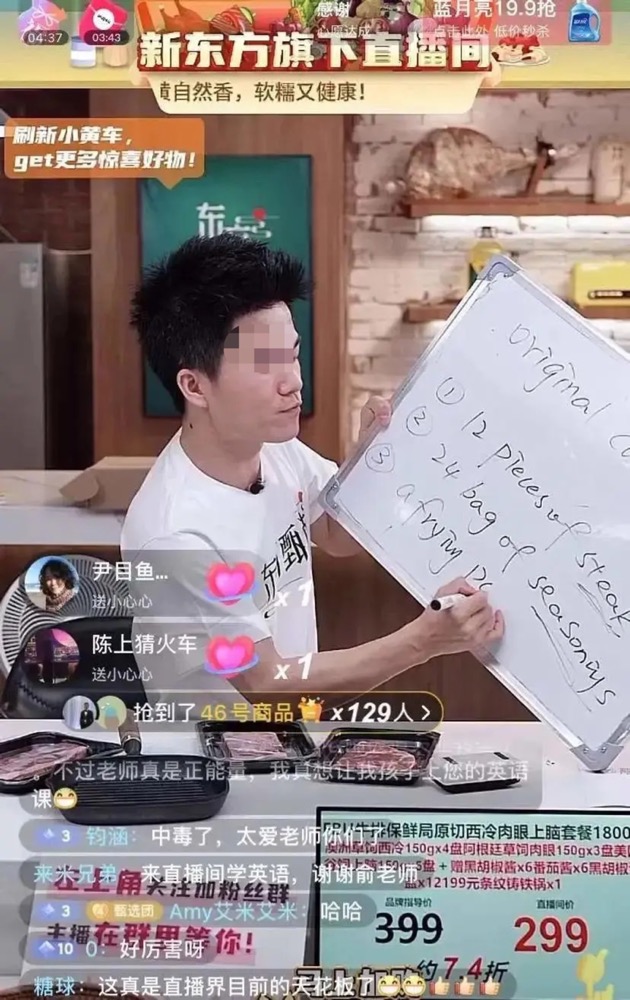 04:37
03:43
感谢
心愿达成
蓝月亮19.9抢
点击此处 低价秒杀
新东方旗下直播间
黄自然香，软糯又健康！
刷新小黄车，
get更多惊喜好物！
东
original
① 12 pieces of steak
② 24 bag of seasonings
③ a frying pa
东方甄
尹目鱼...
送小心心
x 1
陈上猜火车
送小心心
x 1
抢到了 46号商品 x129人 >
。不过老师真是正能量，我真想让我孩子上您的英语
课
3 钧涵：中毒了，太爱老师你们了
来米兄弟：来直播间学英语，谢谢俞老师
3 甄选团 Amy艾米艾米：哈哈
10 0：好厉害呀
糖球：这真是直播界目前的天花板了
在左上角关注加粉丝群
主播在群里等你！
牛排保鲜局原切西冷肉眼上脑套餐1800
澳洲草饲西冷150gx4盘阿根廷草饲肉眼150gx3盘美国
谷饲上脑150g 5盘 + 赠黑胡椒酱x6番茄酱x6黑胡椒
盘x12199元条纹铸铁锅x1
品牌指导价
399
直播间价
299
约7.4折